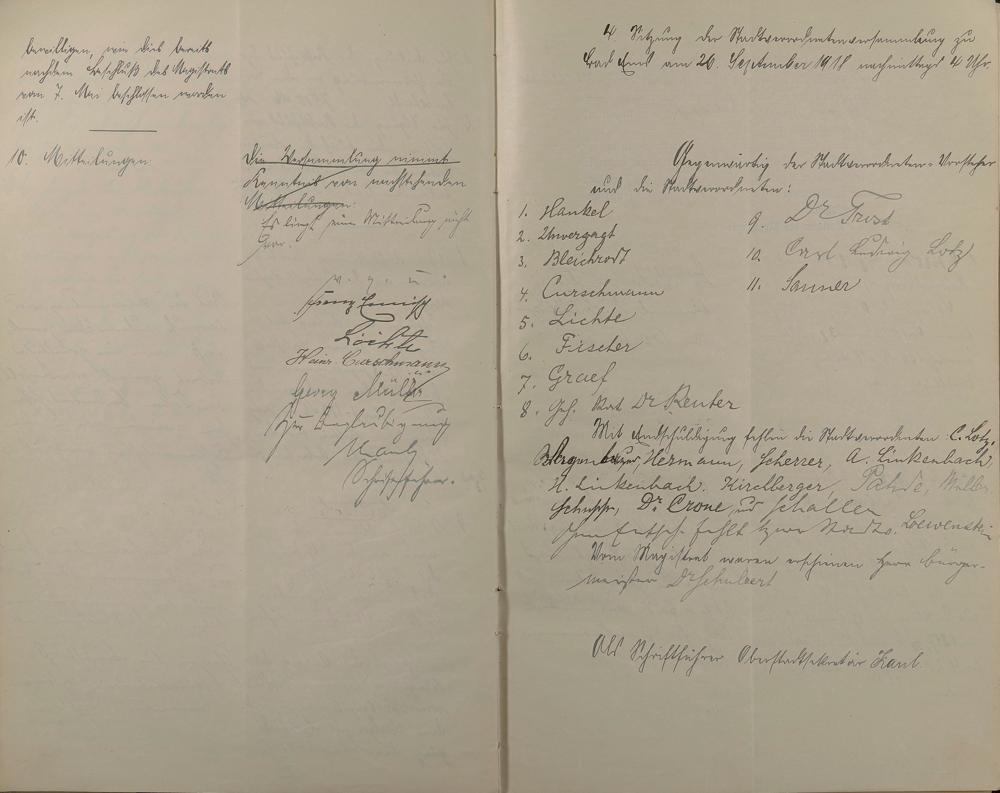 bewilligen, wie dies bereits
nachdem Beschluß des Magistrats
vom 7. Mai beschlossen worden
ist.
10. Mitteilungen.
Die Versammlung nimmt
Kenntnis von nachstehenden
Mitteilungen:
Es liegt eine Mitteilung nicht
vor.
v. g. u.
Franz Ermisch
Lichte
Heinr. Curschmann
Georg Müller
Zur Beglaubigung
Kaul
Schriftführer.
4 Sitzung der Stadtverordnetenversammlung zu
Bad Ems am 26. September 1918 nachmittags 4 Uhr.
Gegenwärtig der Stadtverordneten-Vorsteher
und die Stadtverordneten:
1. Hankel
2. Unverzagt
3. Bleichrodt
4. Curschmann
5. Lichte
6. Fischer
7. Graef
8. Geh. Rat Dr Reuter
9. Dr Trost
10. Carl Ludwig Lotz
11. Sanner
Mit Entschuldigung fehlen die Stadtverordneten C. Lotz,
Hermann, Scherrer, A. Linkenbach,
H. Linkenbach. Kirchberger, Müller
Schupp, Dr. Crone, und Schaller
Ohne fehlt Loewenstein
Vom Magistrat waren erschienen Herr Bürger-
meister Dr Schubert
Als Schriftführer Oberstadtsekretär Kaul.